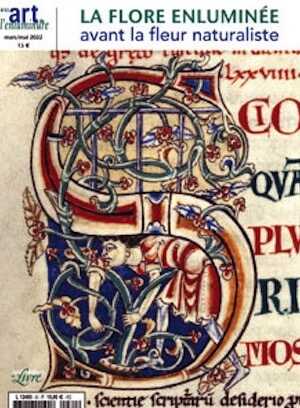 art
de
l'enluminure
mars/mai 2022
15 €
LA FLORE ENLUMINÉE
avant la fleur naturaliste
lxxviiii
CIO
QVA
PLV
RI
MOS
scientie scripturarū desiderio p
Livre